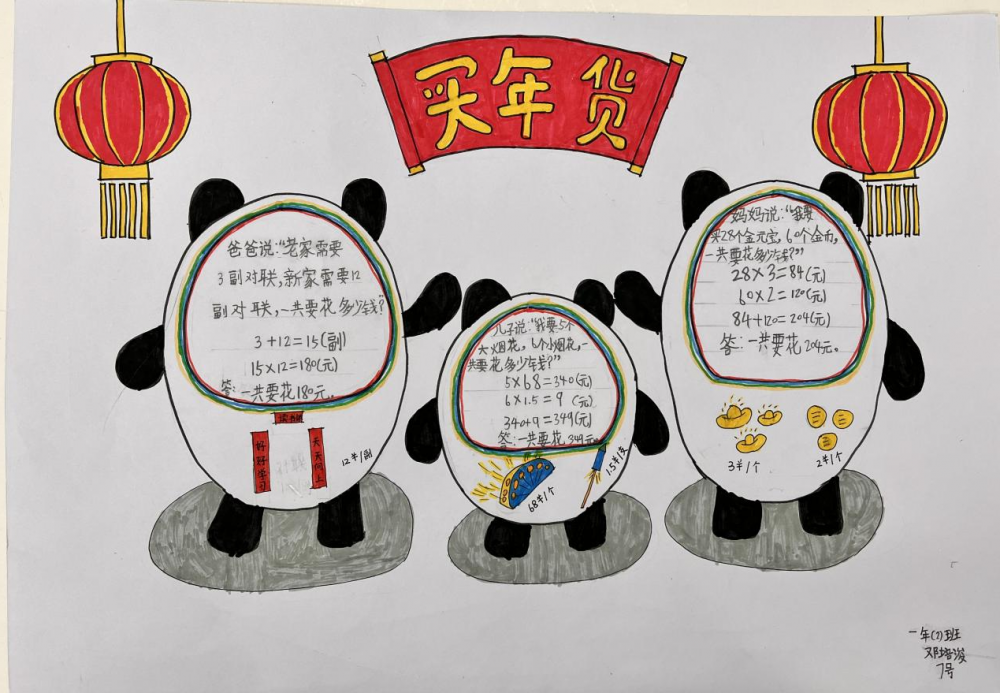 买年货
爸爸说:“老家需要
3副对联,新家需要12
副对联,一共要花多少钱?”
3+12=15(副)
15×12=180(元)
答:一共要花180元。
好好学习
天天向上
12¥/副
儿子说:“我要5个
大烟花,6个小烟花,一
共要花多少钱?”
5×68=340(元)
6×1.5=9 (元)
340+9=349(元)
答:一共要花349元。
68¥/个
1.5¥/支
妈妈说:“我要
买28个金元宝,60个金币,
一共要花多少钱?”
28×3=84(元)
60×2=120(元)
84+120=204(元)
答:一共要花204元。
3¥/个
2¥/个
一年(7)班
邓培浚
7号